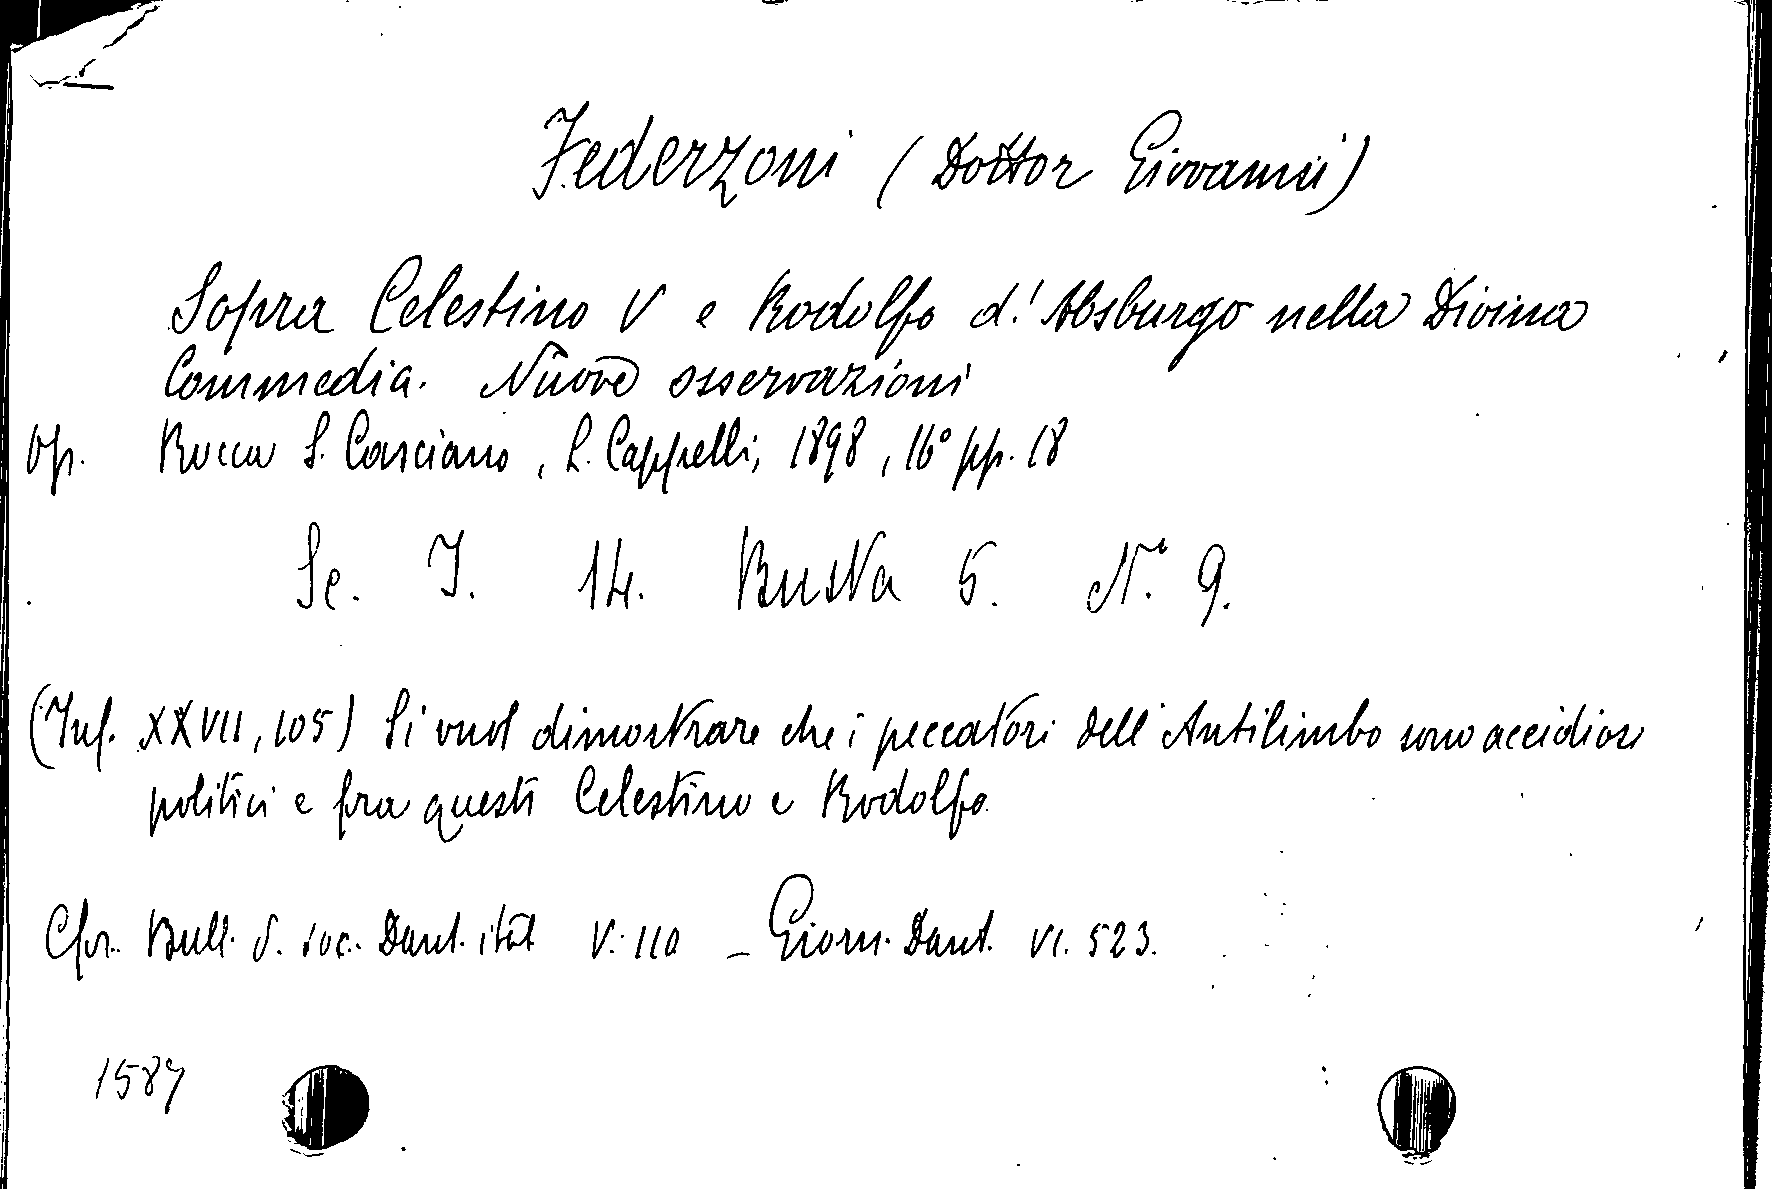 Federzoni (Dottor Giovanni)
Sopra Celestino V e Rodolfo d'Absburgo nella Divina
Commedia. Nuove osservazioni
Op. Rocca S. Casciano, L. Cappelli, 1898, 16° pp. 18
Se. I. 14. Busta 5. N. 9.
(Inf. XXVII, 105) Si vuol dimostrare che i peccatori dell'Antilimbo sono accidiosi
politici e fra questi Celestino e Rodolfo
Cfr. Bull. d. soc. Dant. ital V. 110 – Giorn. Dant. VI. 523.
1587